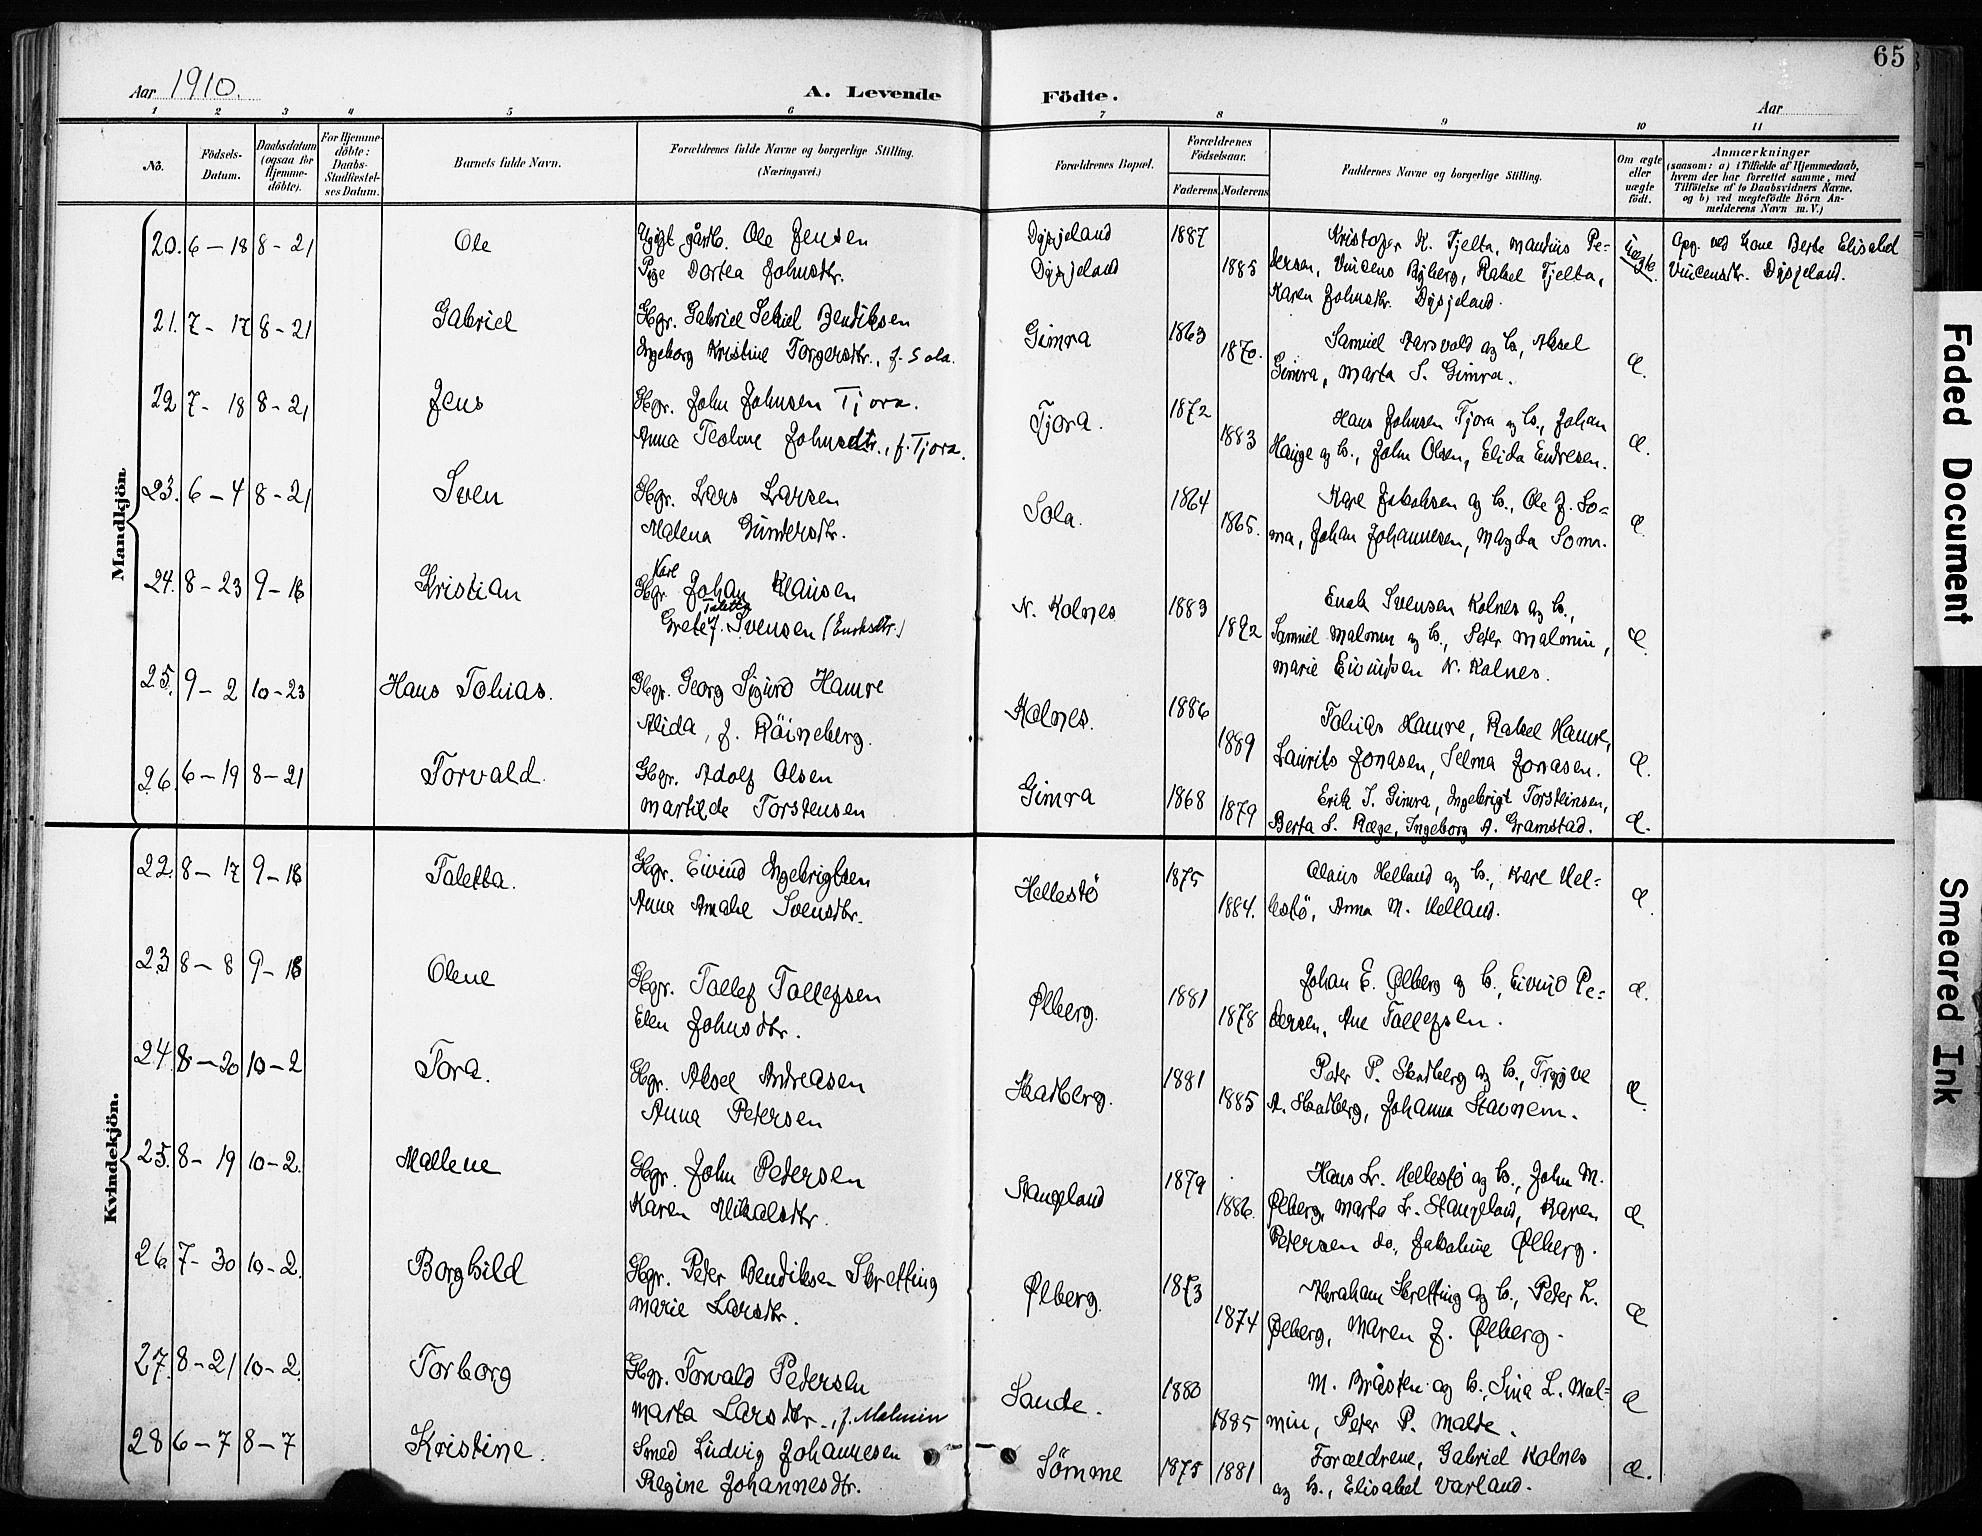 65
Aar 1910.
A. Levende Födte.
Aar
1 2 3 4 5 6 7 8 9 10 11
No.
Födsels-Datum.
Daabsdatum (ogsaa for Hjemme-döbte).
For Hjemme-döbte: Daabs-Stadfæstel-ses Datum.
Barnets fulde Navn.
Forældrenes fulde Navne og borgerlige Stilling. (Næringsvei.)
Forældrenes Bopæl.
Forældrenes Födselsaar.
Faderens Moderens
Faddernes Navne og borgerlige Stilling.
Om ægte eller uægte födt.
Anmærkninger
(saasom: a) i Tilfælde af Hjemmedaab,
hvem der har forrettet samme, med
Tilföielse af to Daabsvidners Navne.
og b) ved uægtefödte Börn An-
melderens Navn m. V.)
Mandkjön.
20. 6-18 8-21 Ole
Ugift gårdb. Ole Jensen
Pige Dortea Johnsdtr.
Dysjeland
Dysjeland
1887 1885
Kristofer K. Tjelta, Mandius Pe-
dersen, Vincens Byberg, Rakel Tjelta,
Karen Johnsdtr. Dysjeland.
Uægte.
Opg. ved Lave Berte Elisabet
Vincensdtr. Dysjeland.
21. 7-17 8-21 Gabriel
Gbr. Gabriel Bendiksen
Ingeborg Kristine Torgersdtr., f. Sola.
Gimra 1863 1870.
Samuel Aarsvold og h., Aksel
Gimra, Marta S. Gimra. Æ.
22 7-18 8-21 Jens
Gbr. John Johnsen Tjora.
Anna Teoline Johnsdtr., f. Tjora.
Tjora. 1872 1883
Hans Johnsen Tjora og h., Johan
Hauge og h., John Olsen, Elida Endresen. Æ.
23. 6-4 8-21 Sven
Gbr. Lars Larsen
Malena Gundersdtr.
Sola. 1864 1865.
Kare Jakobsen og h., Ole J. So-
ma, Johan Johannesen, Magda Soma. Æ
24. 8-23 9-18 Kristian
Kare
Gbr. Johan Klausen
Taletta
Grete f. Svensen (Enoksdtr.)
N. Kolnes 1883 1892
Enok Svensen Kolnes og h.,
Samuel Malmin og h., Peter Malmin,
Marie Eivindsen N. Kolnes. Æ
25. 9-2 10-23 Hans Tobias.
Gbr. Georg Sigurd Hamre
Alida, f. Röineberg.
Kolnes. 1886 1889
Tobias Hamre, Rakel Hamre,
Laurits Jonasen, Selma Jonasen. Æ.
26. 6-19 8-21 Torvald.
Gbr. Adolf Olsen
Martilde Torstensen
Gimra 1868 1879
Erik T. Gimra, Ingebrigt Torsteinsen,
Berta S. Ræge, Ingeborg A. Gramstad. Æ.
Kvindekjön.
22. 8-17 9-18 Taletta.
Gbr. Eivind Ingebrigtsen
Anna Amalie Svensdtr.
Hellestö 1875 1884.
Olaus Helland og h., Kare Hel-
lestö, Anna M. Helland. Æ.
23 8-8 9-18 Olene
Gbr. Tollef Tollefsen
Elen Johnsdtr.
Ølberg. 1881 1878
Johan E. Ølberg og h., Eivind Pe-
dersen, Ane Tollefsen. Æ.
24. 8-20 10-2 Tora.
Gbr. Aksel Andreasen
Anna Petersen
Skadberg. 1881 1885
Peter P. Skadberg og h., Trygve
A. Skadberg, Johanna Stavnem. Æ.
25. 8-19 10-2. Mallene
Gbr. John Pedersen
Karen Mikalsdtr.
Stangeland 1879 1886.
Hans Lr. Hellestö og h., John M.
Ølberg, Marta Lr. Stangeland, Karen
Petersen do, Jakobine Ølberg. Æ.
26. 7-30 10-2. Borghild
Gbr. Peter Bendiksen Skretting
Marie Larsdtr.
Ølberg. 1873 1874
Abraham Skretting og h., Peter L.
Ølberg, Maren J. Ølberg. Æ
27. 8-21 10-2. Torborg
Gbr. Torvald Pedersen
Marta Larsdtr., f. Malmin
Sande. 1880 1885
M. Bråsten og h., Sina L. Mal-
min, Peter P. Malde. Æ
28 6-7 8-7 Kristine.
Smed Ludvig Johannesen
Regine Johannesdtr.
Sömme 1875 1881
Forældrene, Gabriel Kolnes
og h., Elisabet Varland. Æ.
Faded Document
Smeared Ink